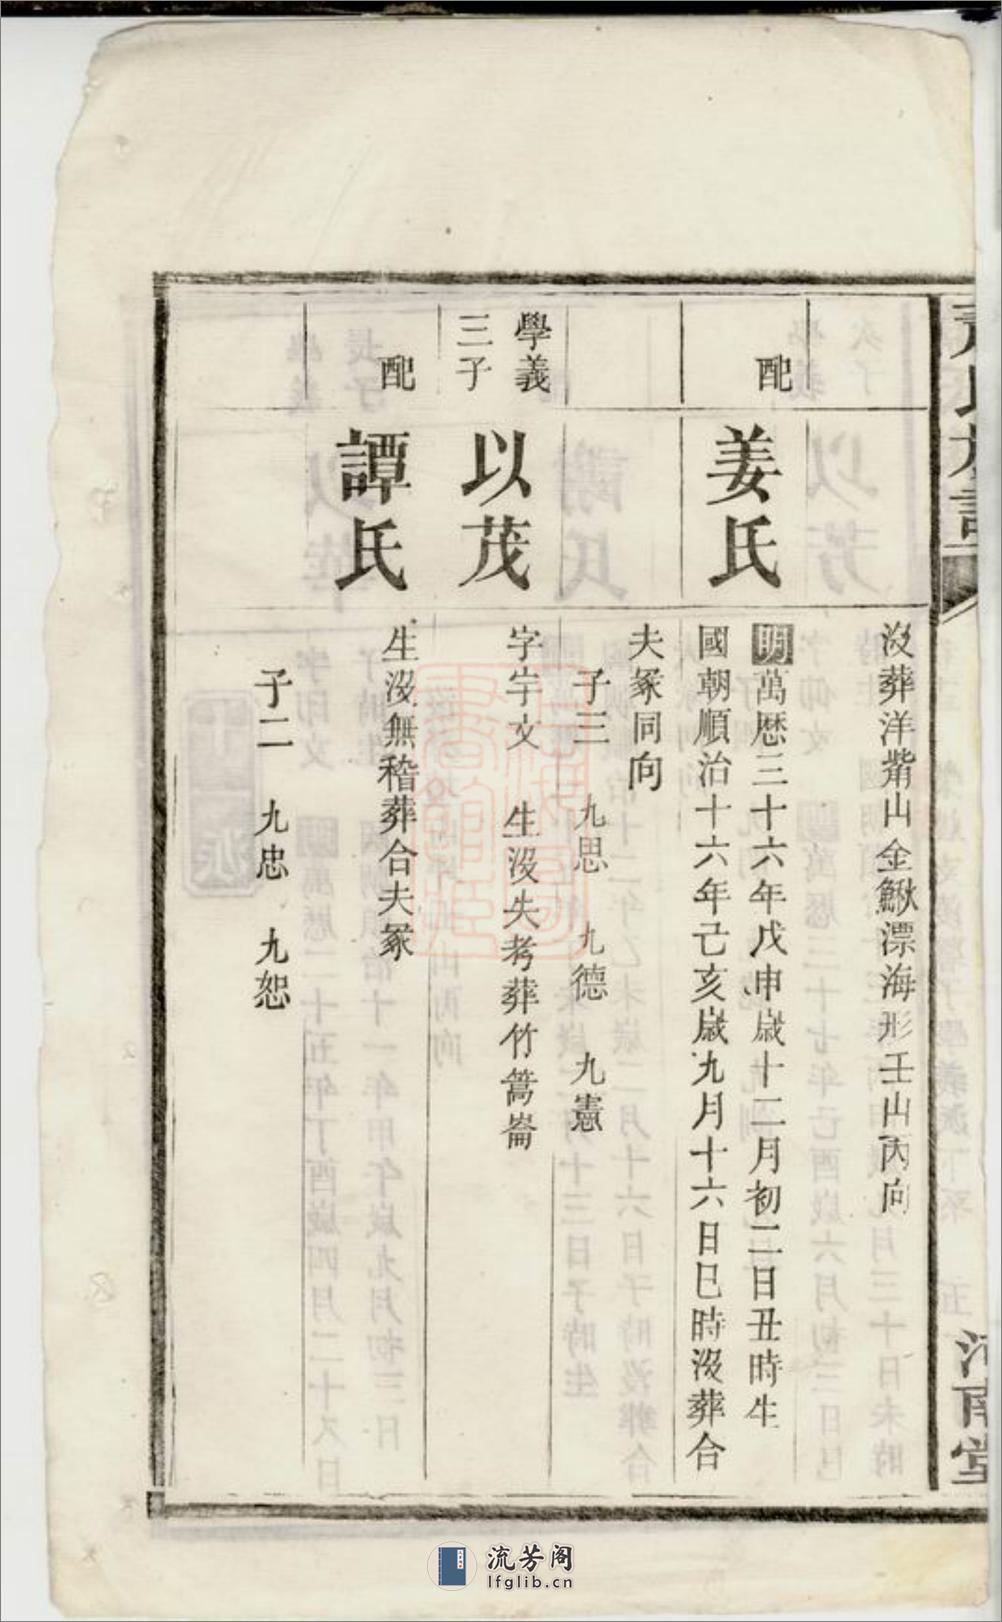 沒葬洋觜山金鰍漂海形壬山丙向
配
姜氏
明萬厯三十六年戊申歲十二月初二日丑時生
國朝順治十六年己亥歲九月十六日巳時沒葬合
夫冢同向
子三 九思 九德 九憲
學義
三子
以茂
字宇文 生沒失考葬竹篙崙
配
譚氏
生沒無稽葬合夫冢
子二 九忠 九恕
氏族譜
河南堂
流芳阁
lfglib.cn